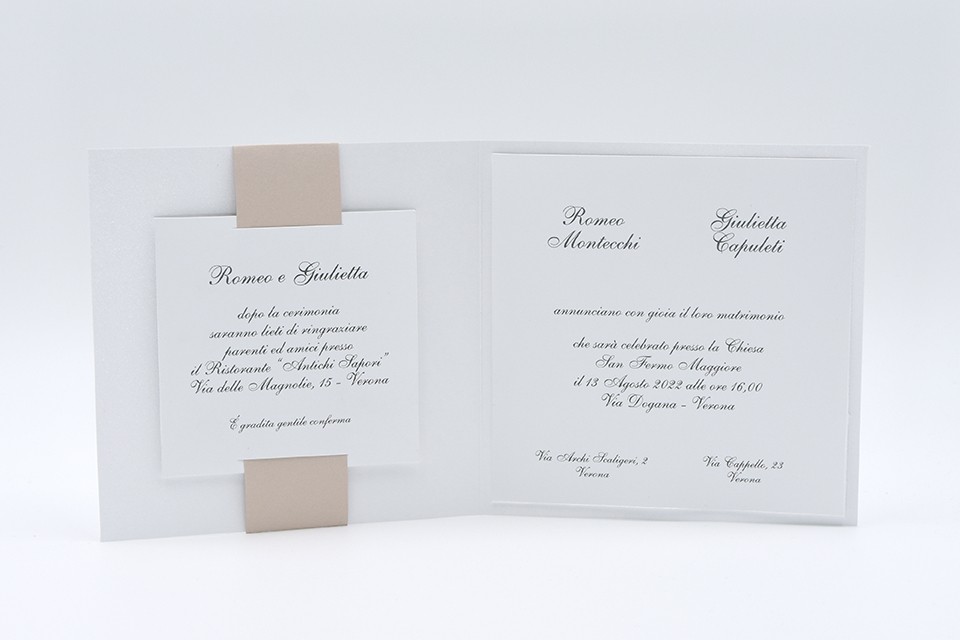 Romeo e Giulietta
dopo la cerimonia
saranno lieti di ringraziare
parenti ed amici presso
il Ristorante “Antichi Sapori”
Via delle Magnolie, 15 - Verona
É gradita gentile conferma
Romeo
Montecchi
Giulietta
Capuleti
annunciano con gioia il loro matrimonio
che sarà celebrato presso la Chiesa
San Fermo Maggiore
il 13 Agosto 2022 alle ore 16,00
Via Dogana - Verona
Via Archi Scaligeri, 2
Verona
Via Cappello, 23
Verona